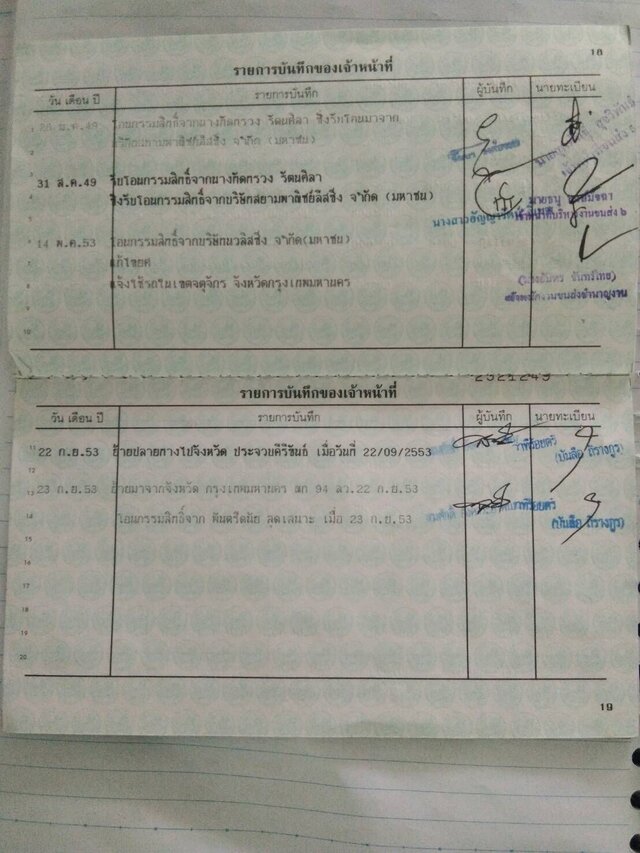 18
รายการบันทึกของเจ้าหน้าที่
วัน เดือน ปี รายการบันทึก ผู้บันทึก นายทะเบียน
1 โอนกรรมสิทธิ์จากนางกิดกรวง วัฒนศิลา ซึ่งรับโอนมาจาก
2 จำกัด (มหาชน)
3
4 31 ส.ค.49 รับโอนกรรมสิทธิ์จากนางกิดกรวง วัฒนศิลา
5 ซึ่งรับโอนกรรมสิทธิ์จากบริษัทสยามพาณิชย์ลีสซิ่ง จำกัด (มหาชน)
6 นางสาวอัญญารัตน์
7 14 พ.ค.53 โอนกรรมสิทธิ์จากบริษัทนวลิสซิ่ง จำกัด(มหาชน)
8 แก้ไขยศ
9 แจ้งใช้รถในเขตจตุจักร จังหวัดกรุงเทพมหานคร
10
2521249
รายการบันทึกของเจ้าหน้าที่
วัน เดือน ปี รายการบันทึก ผู้บันทึก นายทะเบียน
11 22 ก.ย.53 ย้ายปลายทางไปจังหวัด ประจวบคีรีขันธ์ เมื่อวันที่ 22/09/2553
12
13 23 ก.ย.53 ย้ายมาจากจังหวัด กรุงเทพมหานคร ตก 94 ลว.22 ก.ย.53
14 โอนกรรมสิทธิ์จาก พันตรีดนัย สุดเสนาะ เมื่อ 23 ก.ย.53
15
16
17
18
19
20
19